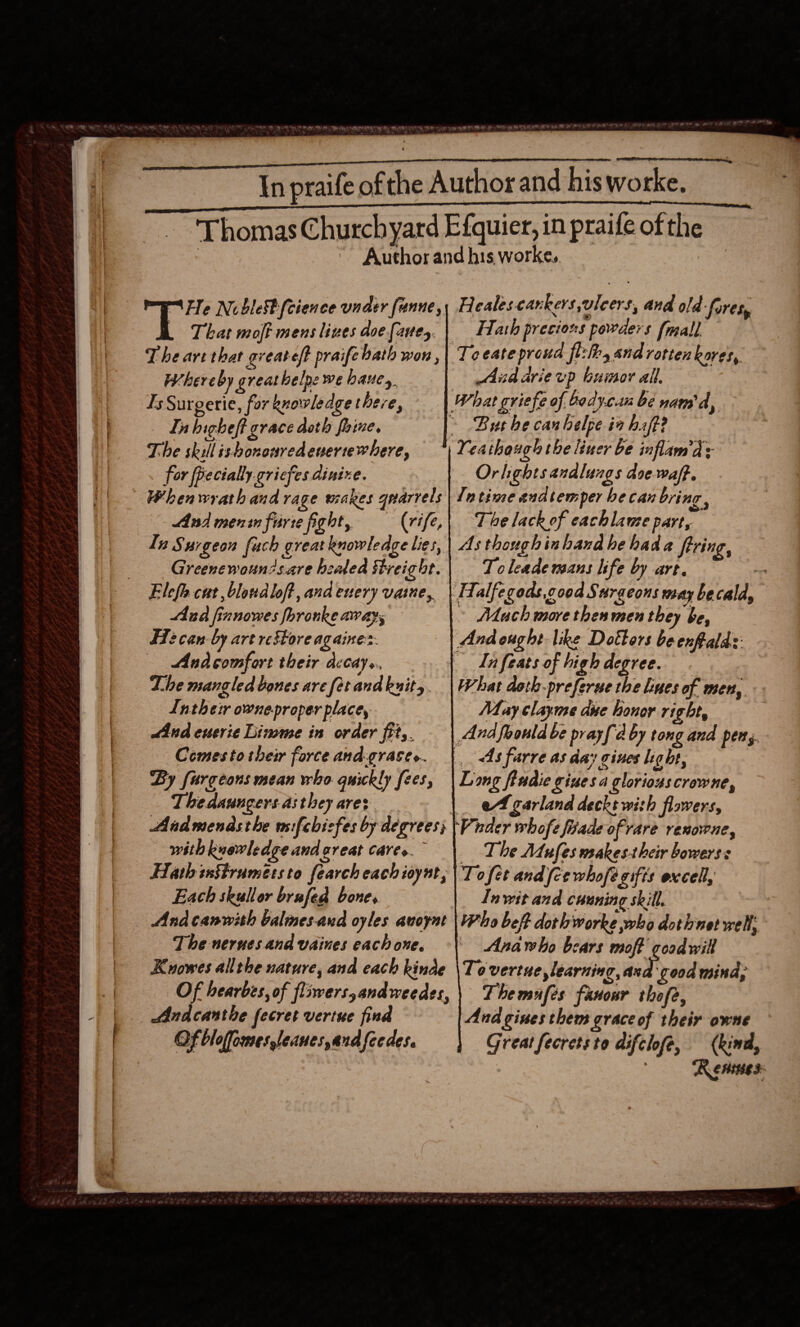 In praiſe of the Author and his worke.
Thomas Churchyard Eſquier, in praiſe of the
Author and his worke.
THe Nobleſt ſcience vnder ſunne,
That moſt mens liues doe ſaue,
The art that greateſt praiſe hath won,
Whereby great helpe we haue,
Is Surgerie, for knowledge there,
In higheſt grace doth ſhine.
The skill is honoured euerie where,
for ſpecially griefes diuine.
When wrath and rage makes quarrels
And men in furie fight, (riſe,
In Surgeon ſuch great knowledge lies,
Greene wounds are healed ſtreight.
Fleſh cut, bloud loſt, and euery vaine,
And ſinnowes ſhronke away,
He can by art reſtore againe:
And comfort their decay.
The mangled bones are ſet and knit,
In their owne proper place,
And euerie Limme in order fit,
Comes to their force and grace.
By ſurgeons mean who quickly ſees,
The daungers as they are:
And mends the miſchiefes by degrees,
with knowledge and great care.
Hath inſtrumēts to ſearch each ioynt,
Each skull or bruſed bone.
And can with balmes and oyles anoynt
The nerues and vaines each one.
Knowes all the nature, and each kinde
Of hearbes, of flowers, and weedes,
And can the ſecret vertue find
Of bloſſomes, leaues, and ſeedes.
Heales cankers, vlcers, and old ſores,
Hath precious powders ſmall
To eate proud fleſh, and rotten kores,
And drie vp humor all.
What griefe of body can be nam'd,
But he can helpe in haſt?
Yea though the liuer be inflam'd:
Or lights and lungs doe waſt.
In time and temper he can bring,
The lack of each lame part,
As though in hand he had a ſtring,
To leade mans life by art.
Halfe gods, good Surgeons may be cald,
Much more then men they be,
And ought like Doctors be enſtald:
In feats of high degree.
What doth preſerue the liues of men,
May clayme due honor right,
And ſhould be prayſ'd by tong and pen,
As farre as day giues light,
Long ſtudie giues a glorious crowne,
A garland deckt with flowers,
Vnder whoſe ſhade of rare renowne,
The Muſes makes their bowers:
To ſet and ſee whoſe gifts excell,
In wit and cunning skill.
Who beſt doth worke, who doth not well,
And who bears moſt good will
To vertue, learning, and good mind,
The muſes fauour thoſe,
And giues them grace of their owne
Great ſecrets to diſcloſe, (kind,